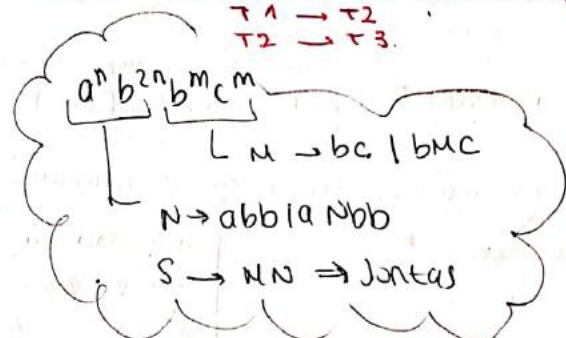 T1 → T2
T2 → T3.
aⁿb²ⁿbᵐcᵐ
M → bc | bMc
N → abb | a Nbb
S → MN ⇒ Juntas